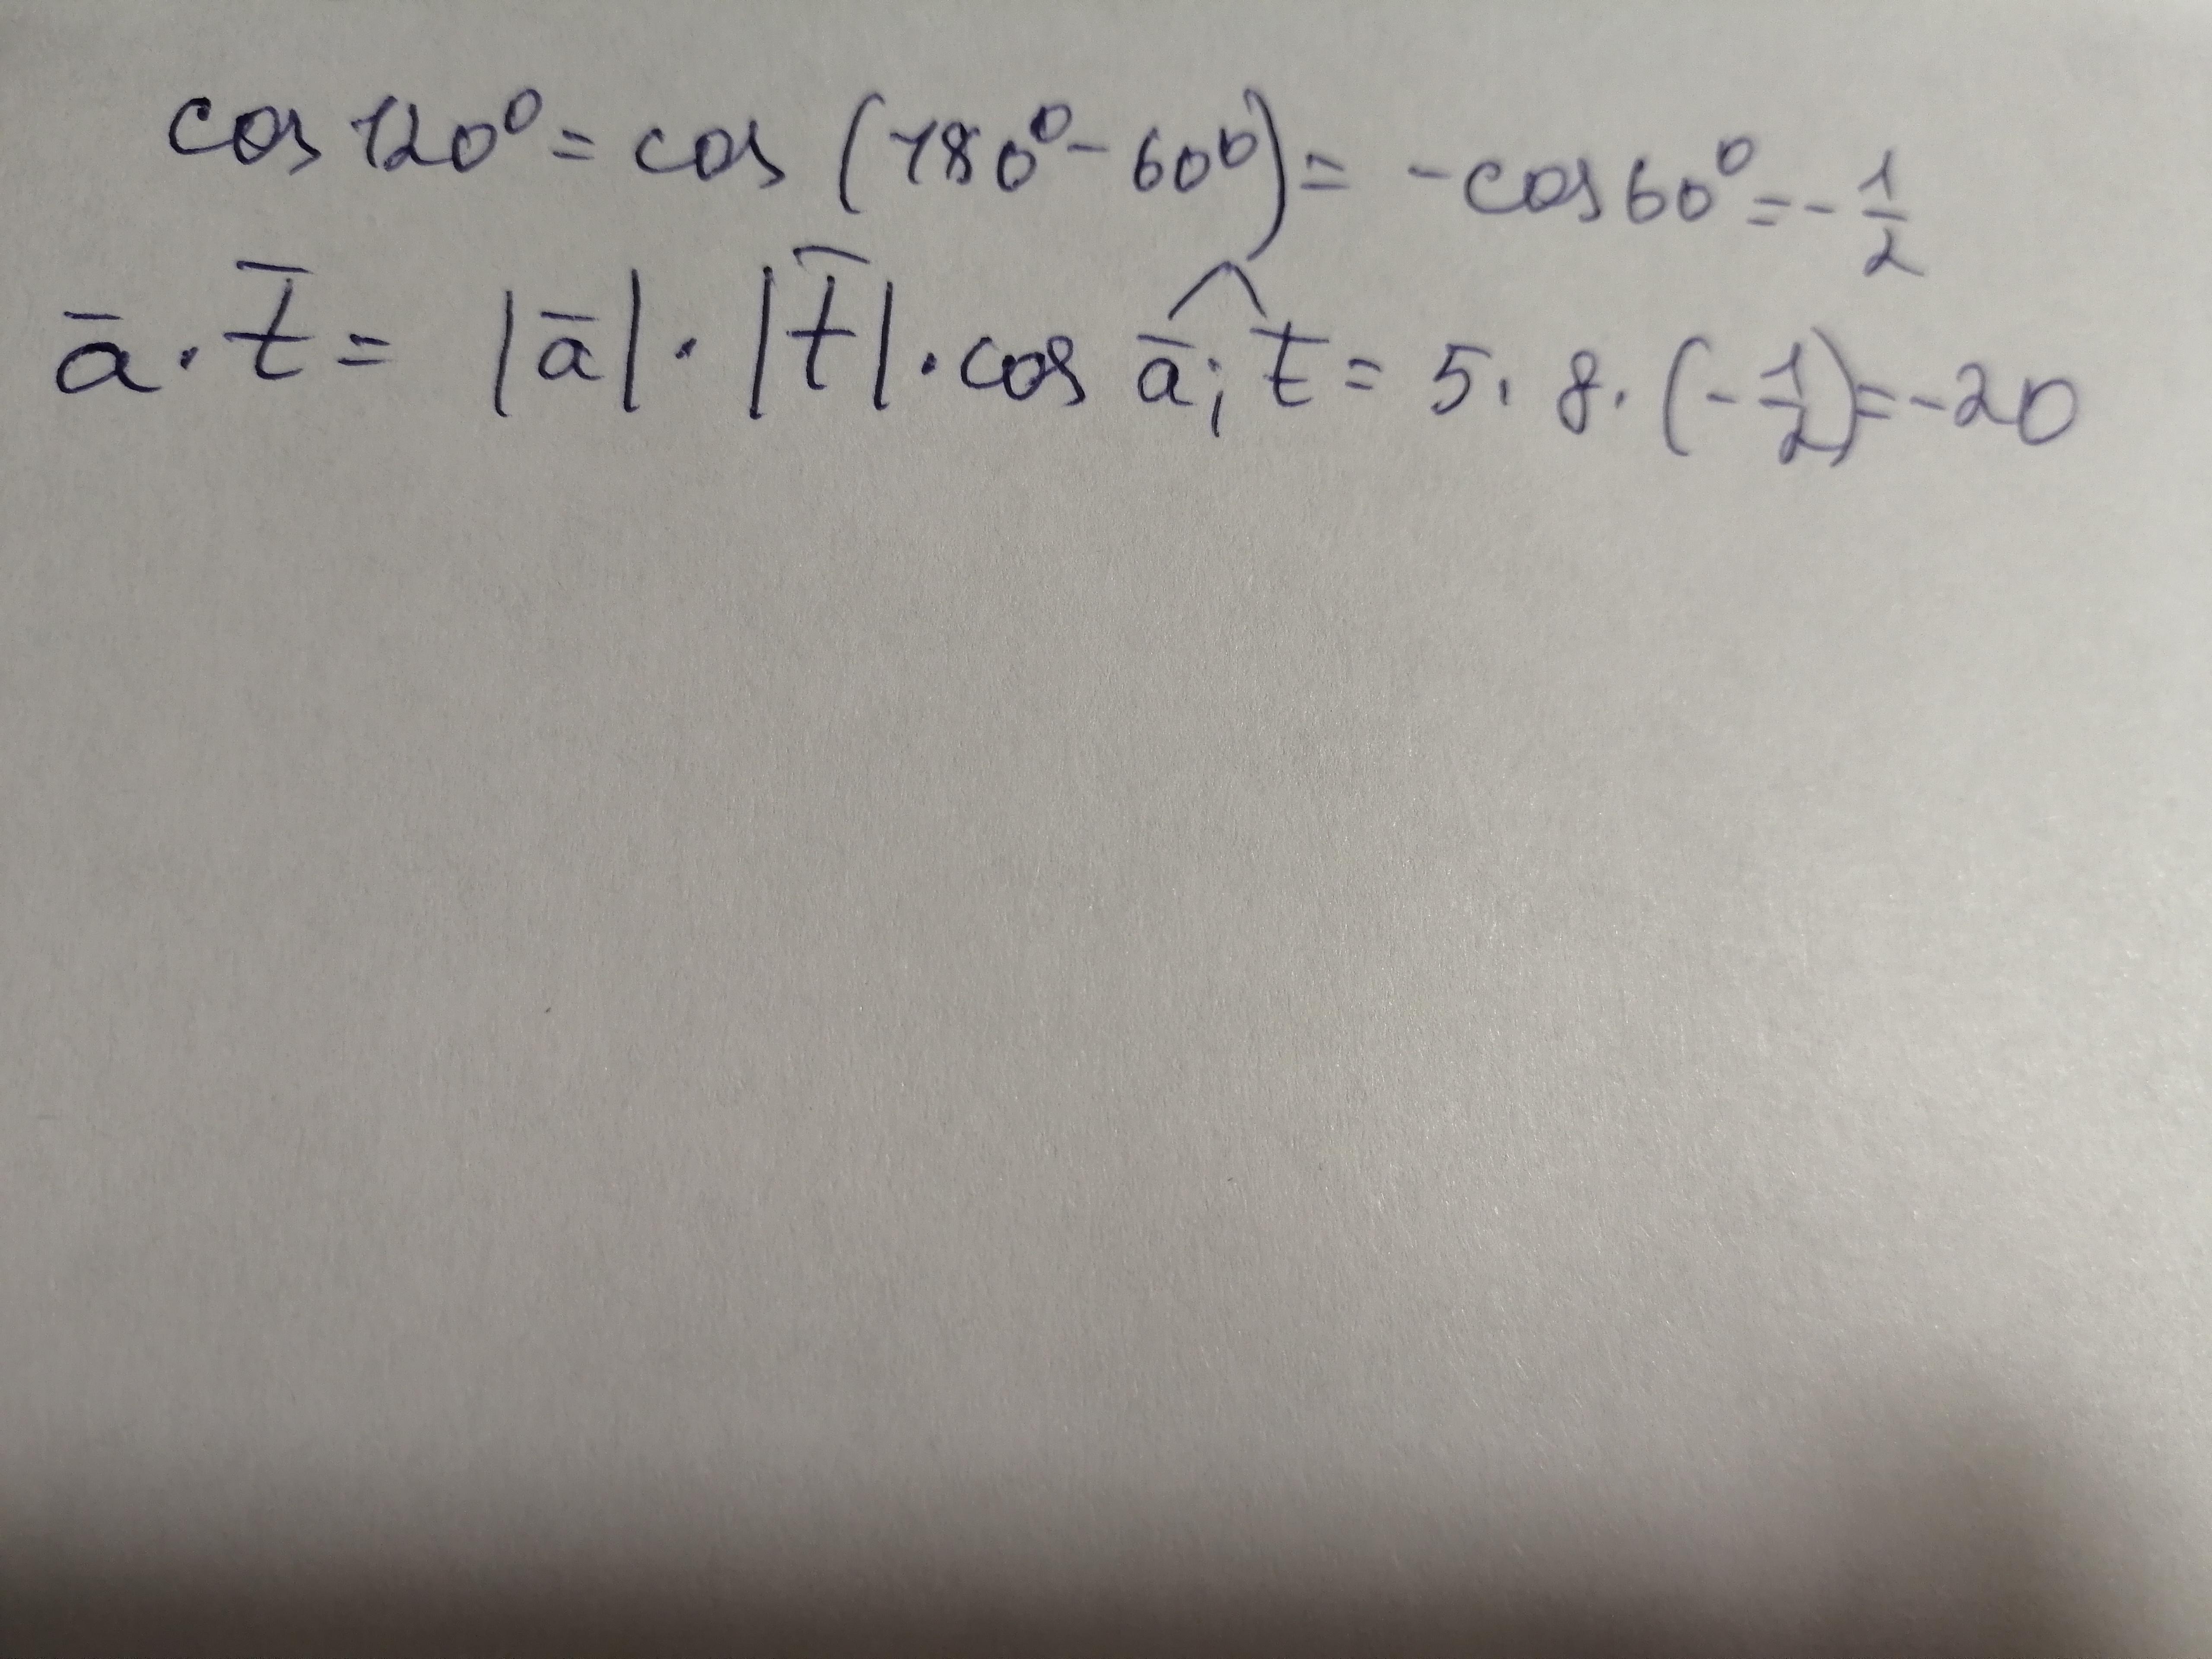 cos 120° = cos (180° - 60°) = - cos 60° = - 1/2
a̅ · t̅ = |a̅| · |t̅| · cos a̅; t̅ = 5 · 8 · (- 1/2) = -20